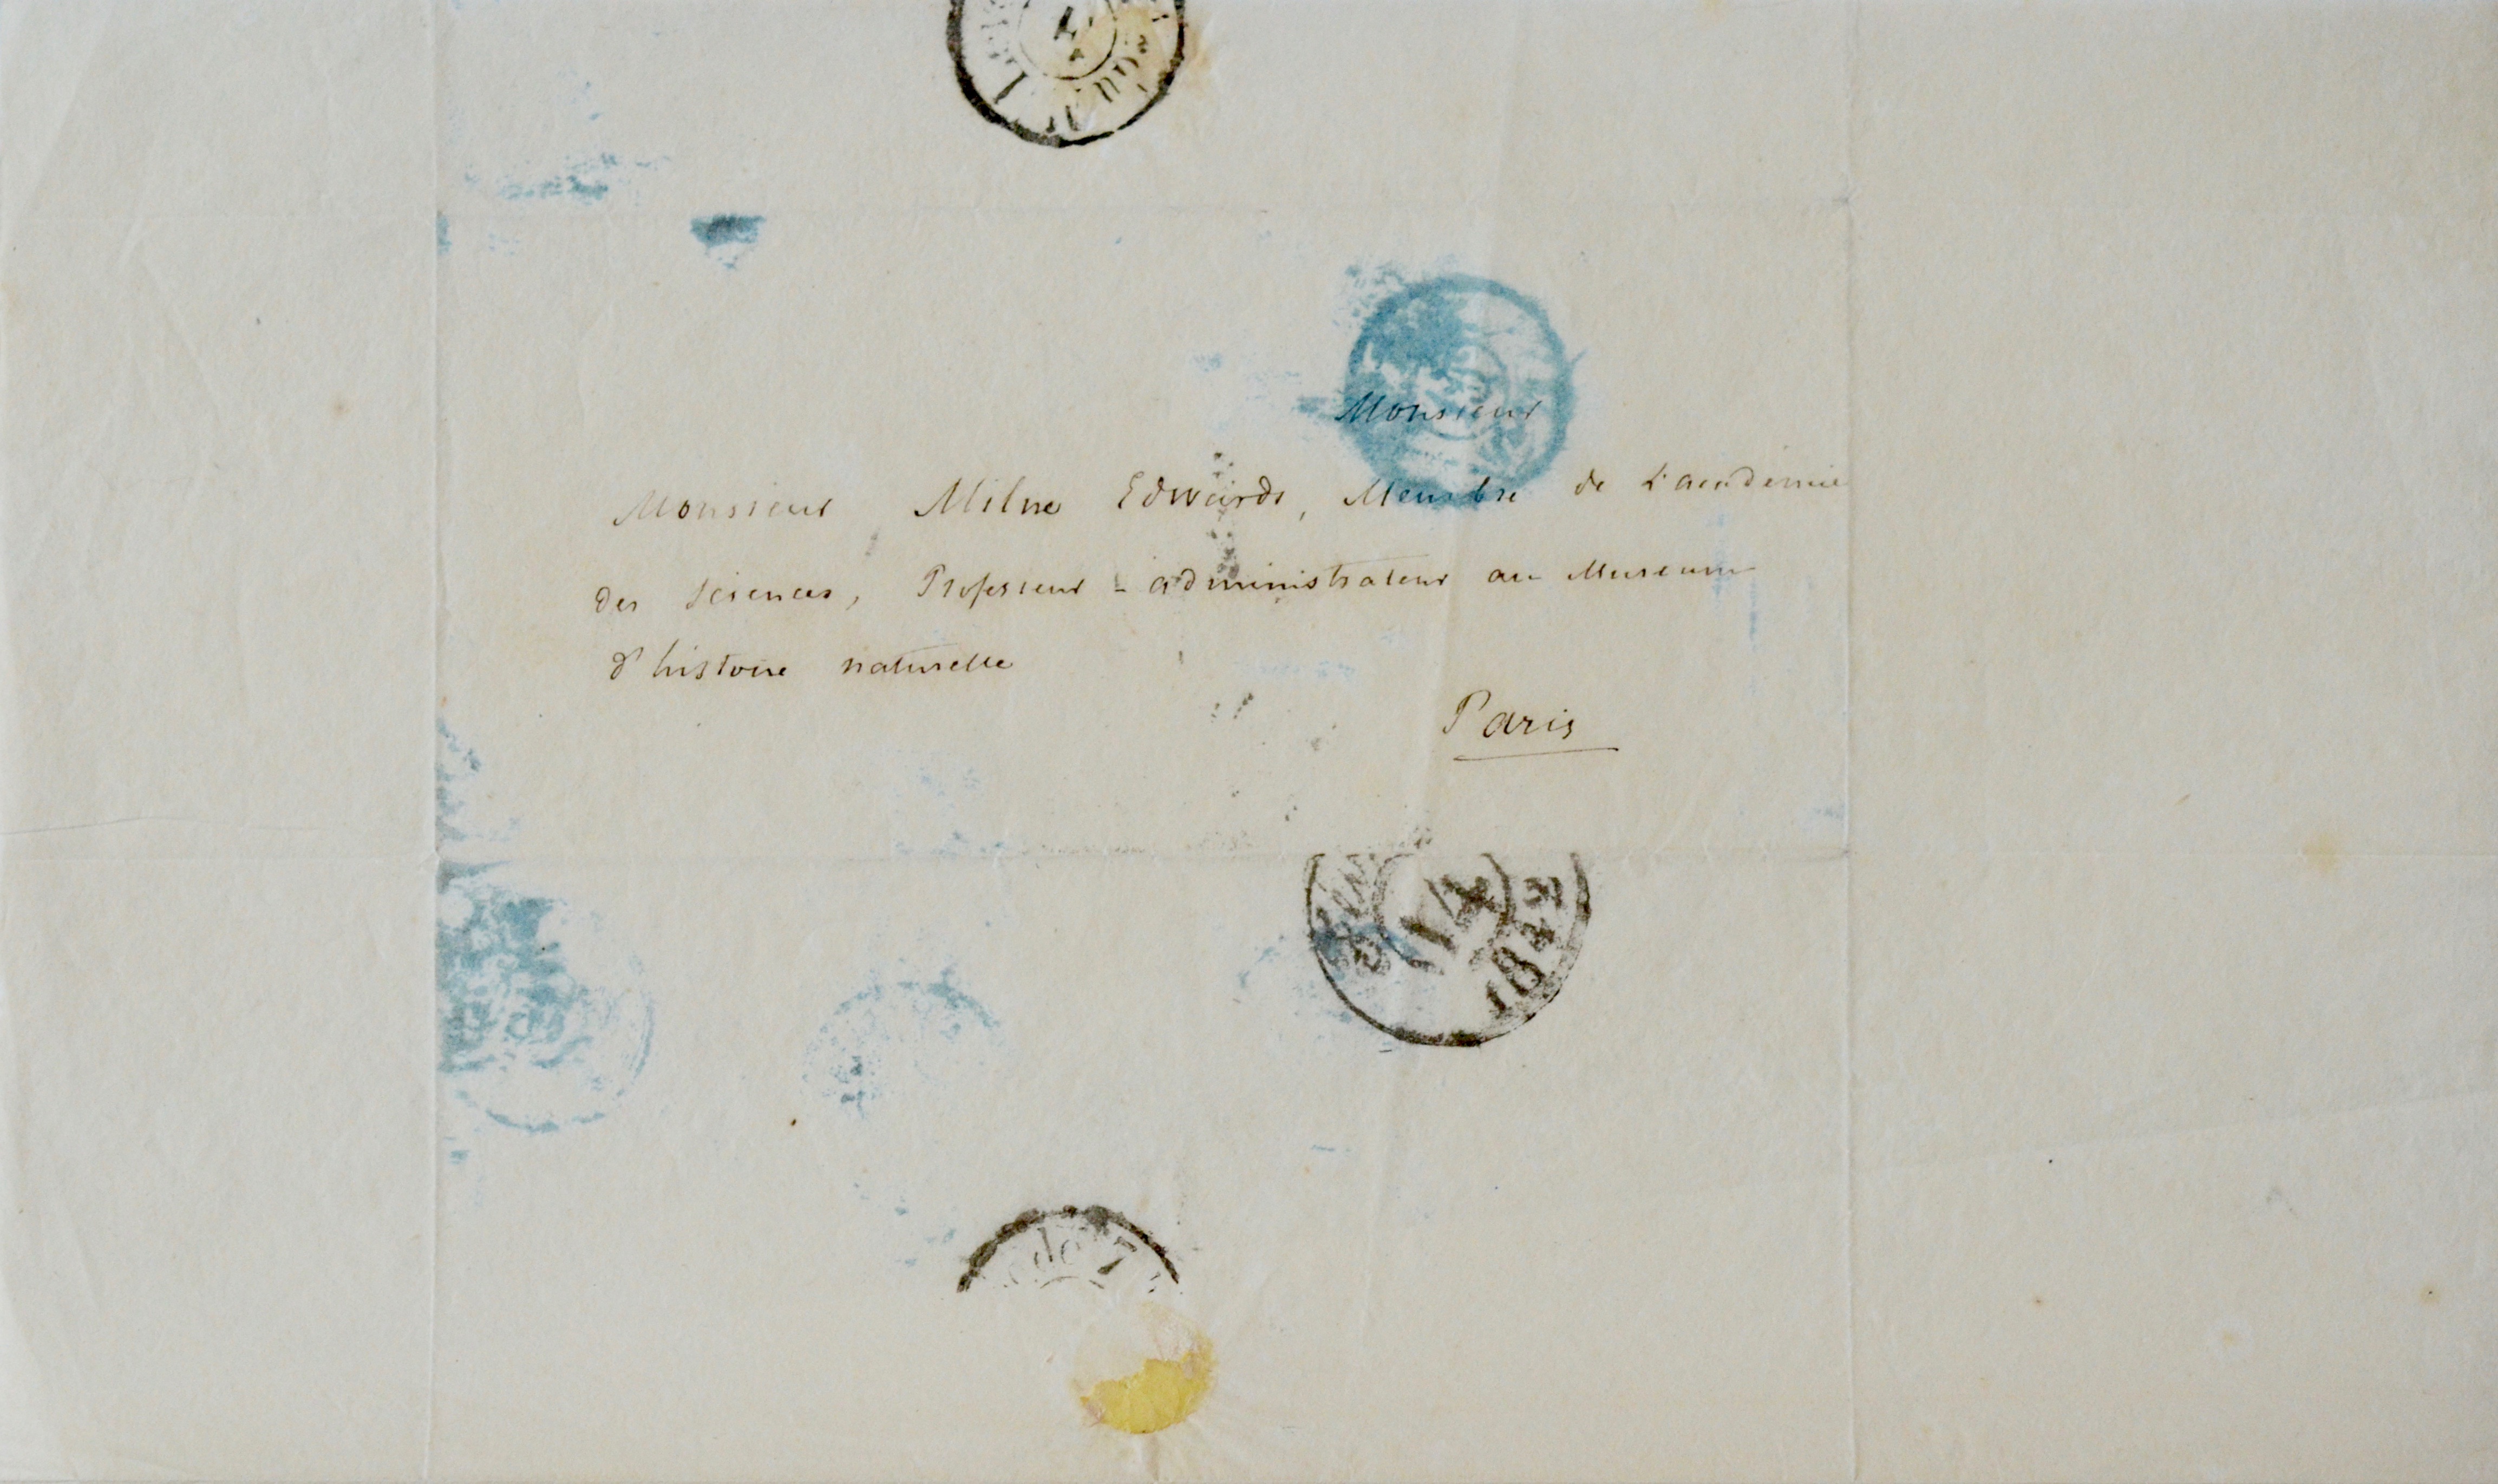 Monsieur
Monsieur Milne Edwards, Membre de L'academie
des sciences, Professeur - administrateur au Museum
d'histoire naturelle
Paris
14
184